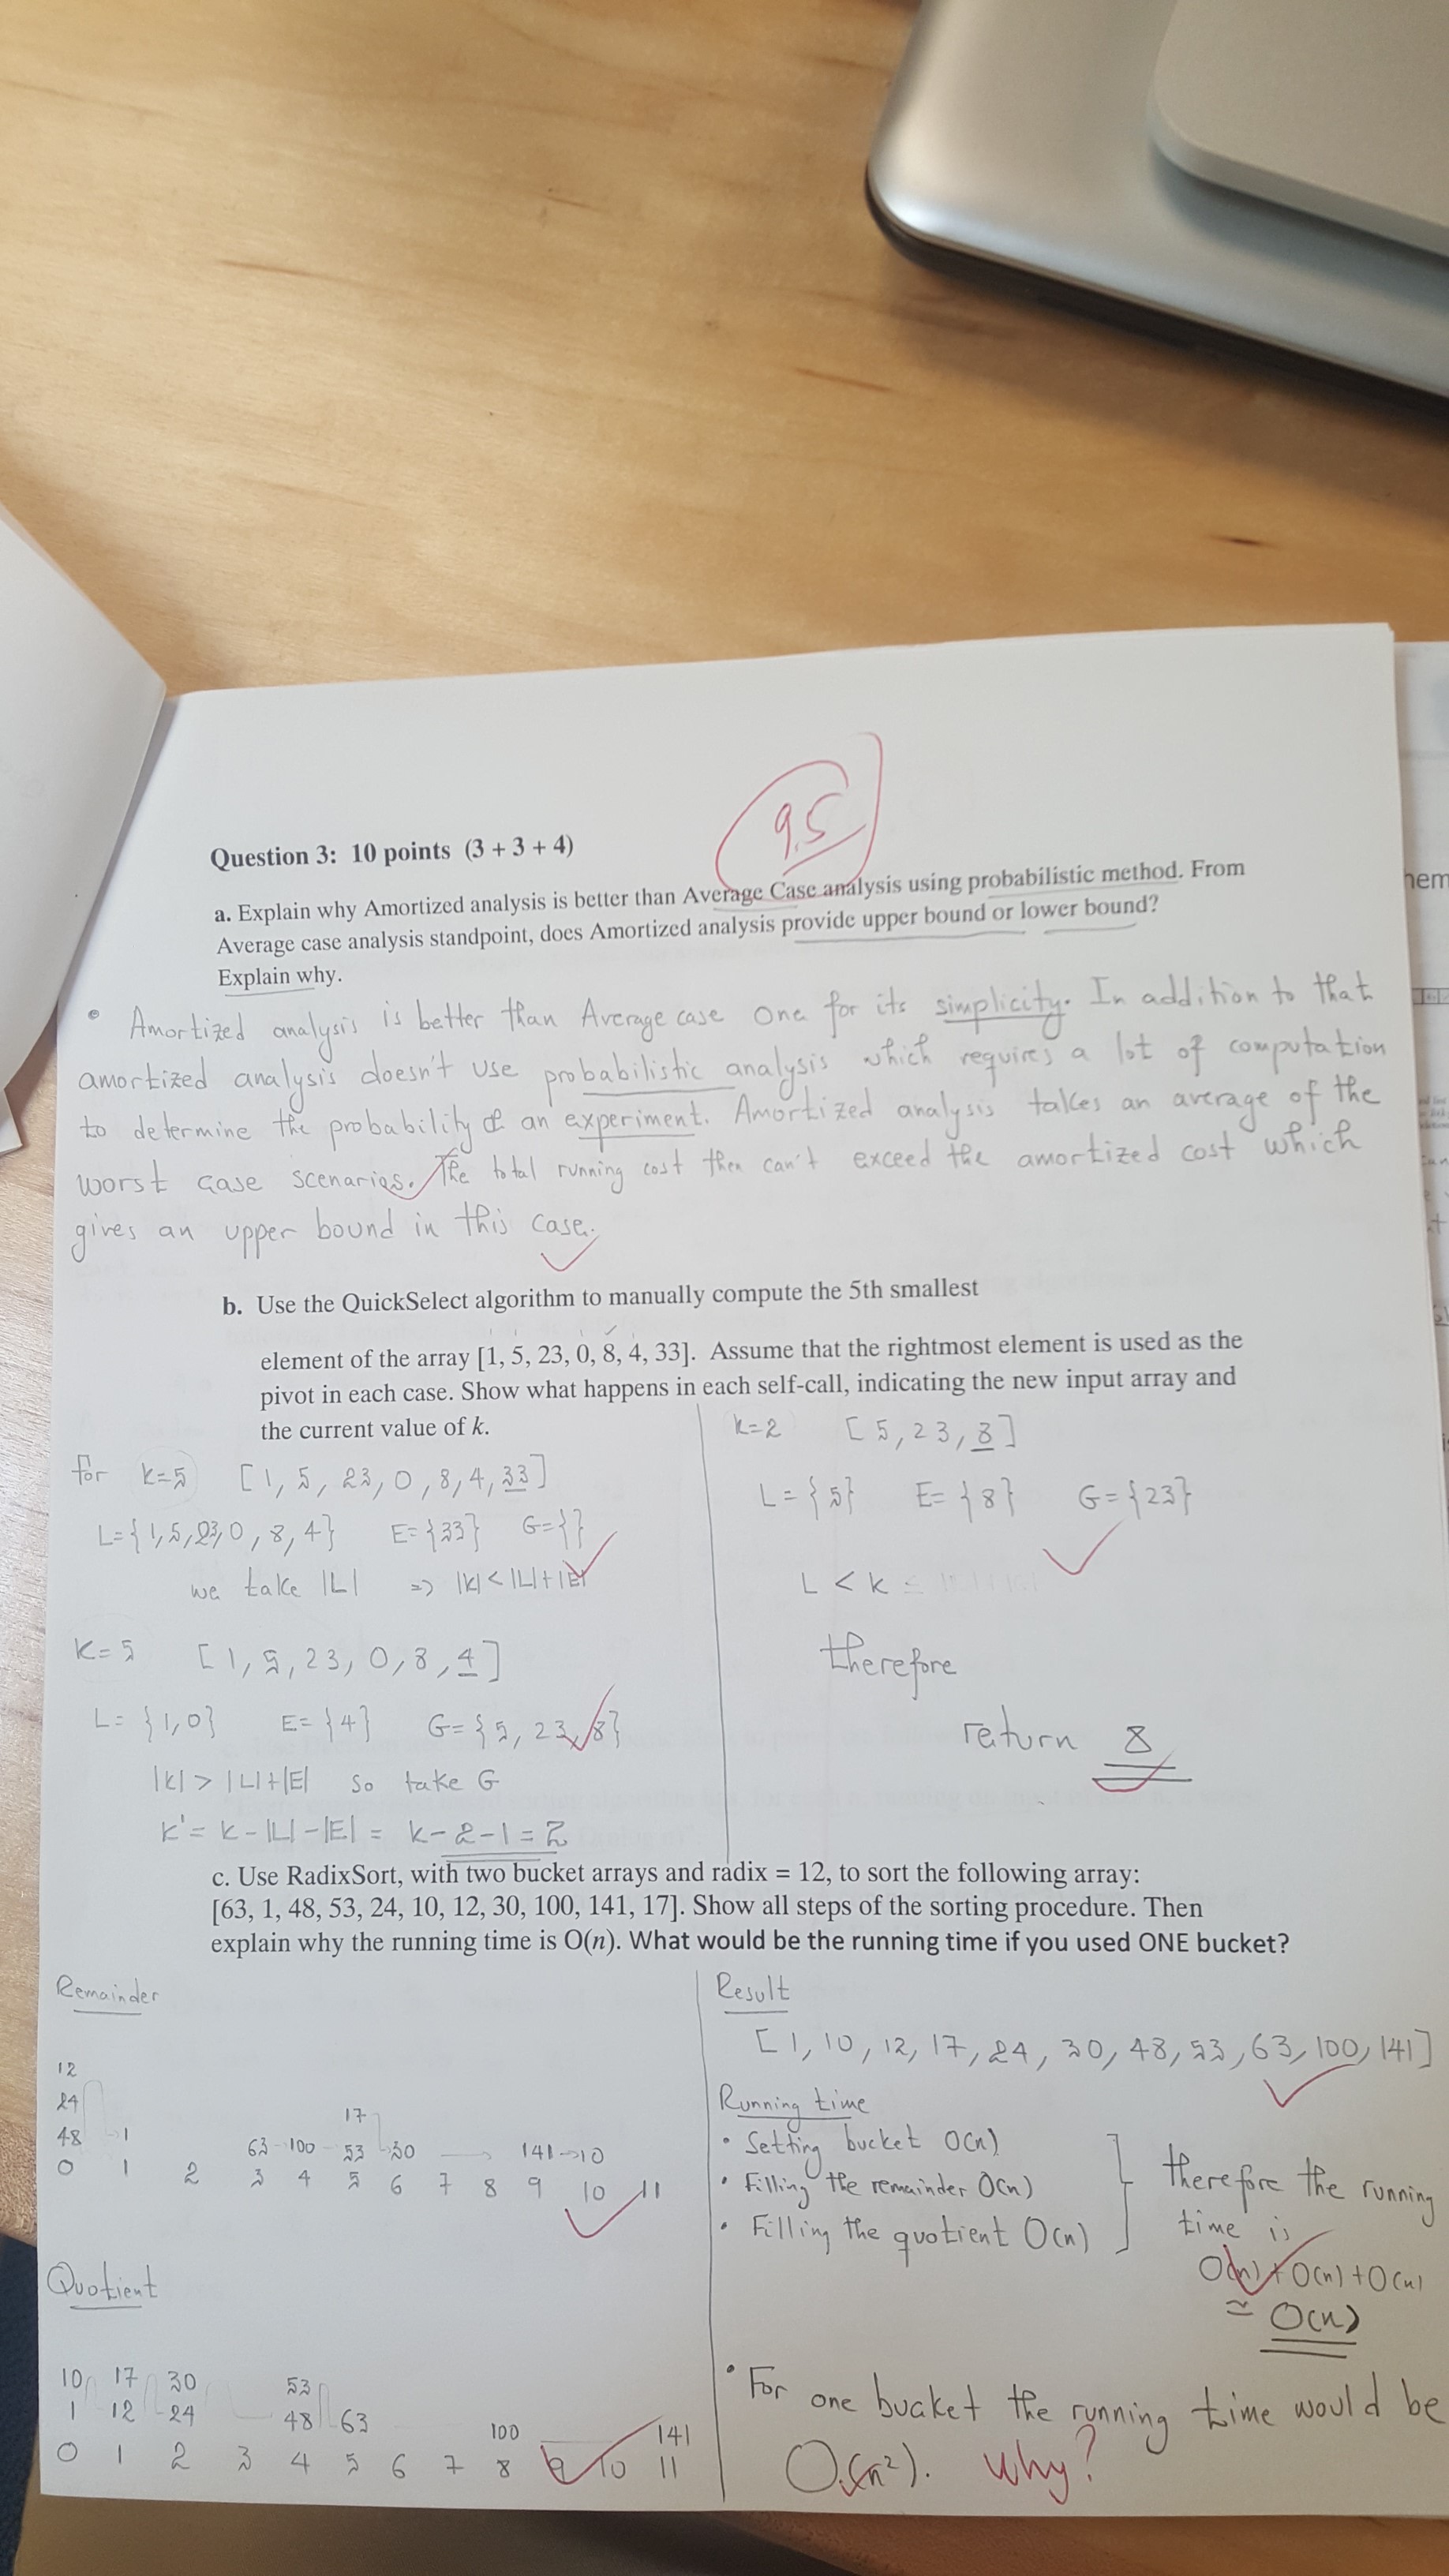 9.5
Question 3: 10 points (3 + 3 + 4)
a. Explain why Amortized analysis is better than Average Case analysis using probabilistic method. From
Average case analysis standpoint, does Amortized analysis provide upper bound or lower bound?
Explain why.
• Amortized analysis is better than Average case one for its simplicity. In addition to that
amortized analysis doesn't use probabilistic analysis which requires a lot of computation
to determine the probability of an experiment. Amortized analysis takes an average of the
worst case scenarios. The total running cost then can't exceed the amortized cost which
gives an upper bound in this case.
b. Use the QuickSelect algorithm to manually compute the 5th smallest
element of the array [1, 5, 23, 0, 8, 4, 33]. Assume that the rightmost element is used as the
pivot in each case. Show what happens in each self-call, indicating the new input array and
the current value of k.
for k=5 [1, 5, 23, 0, 8, 4, 33]
L={1,5,23,0,8,4} E={33} G={}
we take |L| => |k|<|L|+|E|
K=5 [1, 5, 23, 0, 8, 4]
L= {1,0} E={4} G={5, 23, 8}
|k| > |L|+|E| so take G
k'= k-|L|-|E| = k-2-1=2
k=2 [5, 23, 8]
L={5} E={8} G={23}
L < k
therefore
return 8
c. Use RadixSort, with two bucket arrays and radix = 12, to sort the following array:
[63, 1, 48, 53, 24, 10, 12, 30, 100, 141, 17]. Show all steps of the sorting procedure. Then
explain why the running time is O(n). What would be the running time if you used ONE bucket?
Remainder
12
24 17
48 1 63 100 53 30 141 10
0 1 2 3 4 5 6 7 8 9 10 11
Quotient
10 17 30 53
1 12 24 48 63 100 141
0 1 2 3 4 5 6 7 8 9 10 11
Result
[1, 10, 12, 17, 24, 30, 48, 53, 63, 100, 141]
Running time
• Setting bucket O(n)
• Filling the remainder O(n)
• Filling the quotient O(n)
therefore the running
time is
O(n)+O(n)+O(n)
≃ O(n)
• For one bucket the running time would be
O(n²). Why?